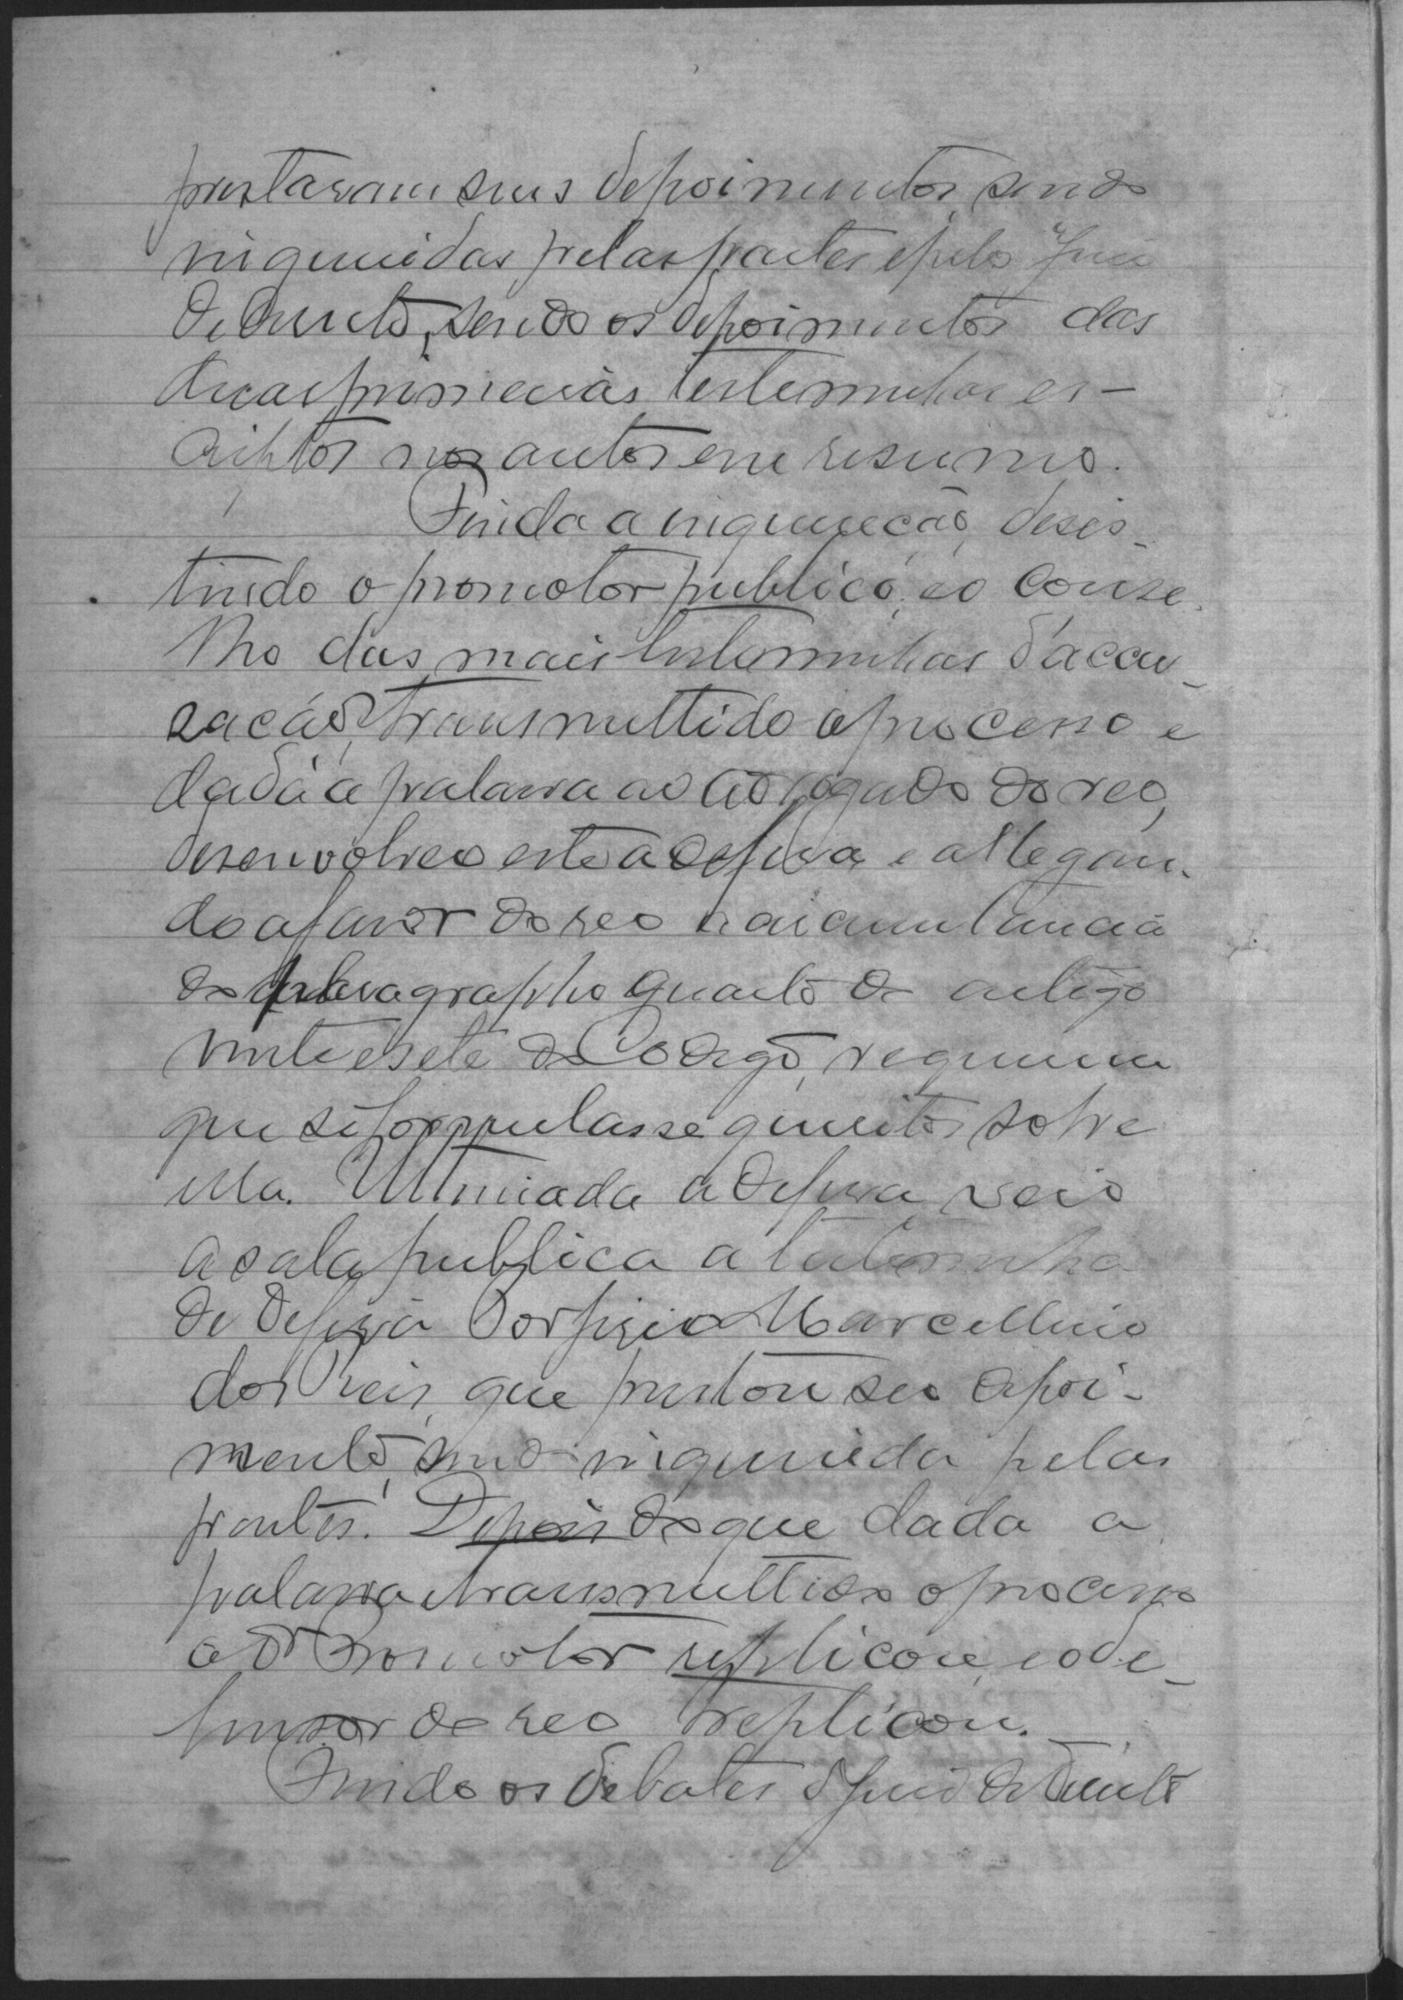 prestaram seus depoimentos, sendo
inqueridas pelas partes e pelo Juiz
de Direito, sendo os depoimentos das
duas primeiras testemunhas es-
criptos nos autos em resumo.
Finda a inquerição, desis-
tindo o promotor publico, e o conse-
lho das mais testemunhas d'accu-
sação, transmettido o processo e
dada a palavra ao advogado do reo,
desenvolveo este a defesa e allegan-
do a favor do reo a circumstancia
do paragrapho quarto do artigo
vinte e sete do Codigo, requereu
que se formulasse quesitos sobre
ella. Ultimada a defesa, veio
a sala publica a testemunha
de defesa Porfirio Marcellino
dos Reis, que prestou seu depoi-
mento, sendo inquerida pelas
partes. Depois do que dada a
palavra e transmettido o processo
ao Dr Promotor replicou, e o de-
fensor do reo treplicou.
Findo os debates o Juiz de Direito